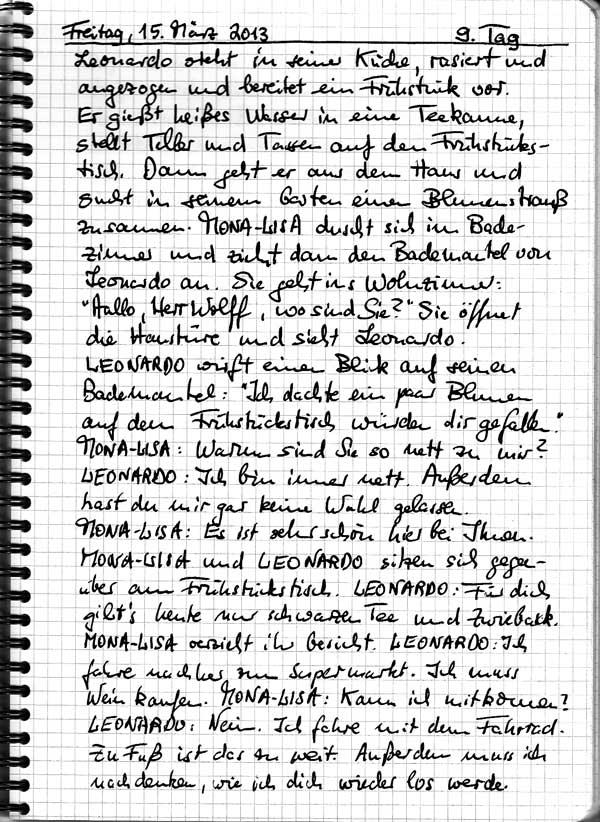 Freitag, 15. März 2013 9. Tag
Leonardo steht in seiner Küche, rasiert und
angezogen und bereitet ein Frühstück vor.
Er gießt heißes Wasser in eine Teekanne,
stellt Teller und Tassen auf den Frühstücks-
tisch. Dann geht er aus dem Haus und
sucht in seinem Garten einen Blumenstrauß
zusammen. MONA-LISA duscht sich im Bade-
zimmer und zieht dann den Bademantel von
Leonardo an. Sie geht ins Wohnzimmer:
"Hallo, Herr Wolff, wo sind Sie?" Sie öffnet
die Haustüre und sieht Leonardo.
LEONARDO wirft einen Blick auf seinen
Bademantel: "Ich dachte ein paar Blumen
auf dem Frühstückstisch würden dir gefallen."
MONA-LISA: Warum sind Sie so nett zu mir?
LEONARDO: Ich bin immer nett. Außerdem
hast du mir gar keine Wahl gelassen.
MONA-LISA: Es ist sehr schön hier bei Ihnen.
MONA-LISA und LEONARDO sitzen sich gegen-
über am Frühstückstisch. LEONARDO: Für dich
gibt's heute nur schwarzen Tee und Zwieback.
MONA-LISA verzieht ihr Gesicht. LEONARDO: Ich
fahre nachher zum Supermarkt. Ich muss
Wein kaufen. MONA-LISA: Kann ich mitkommen?
LEONARDO: Nein. Ich fahre mit dem Fahrrad.
Zu Fuß ist das zu weit. Außerdem muss ich
nachdenken, wie ich dich wieder los werde.